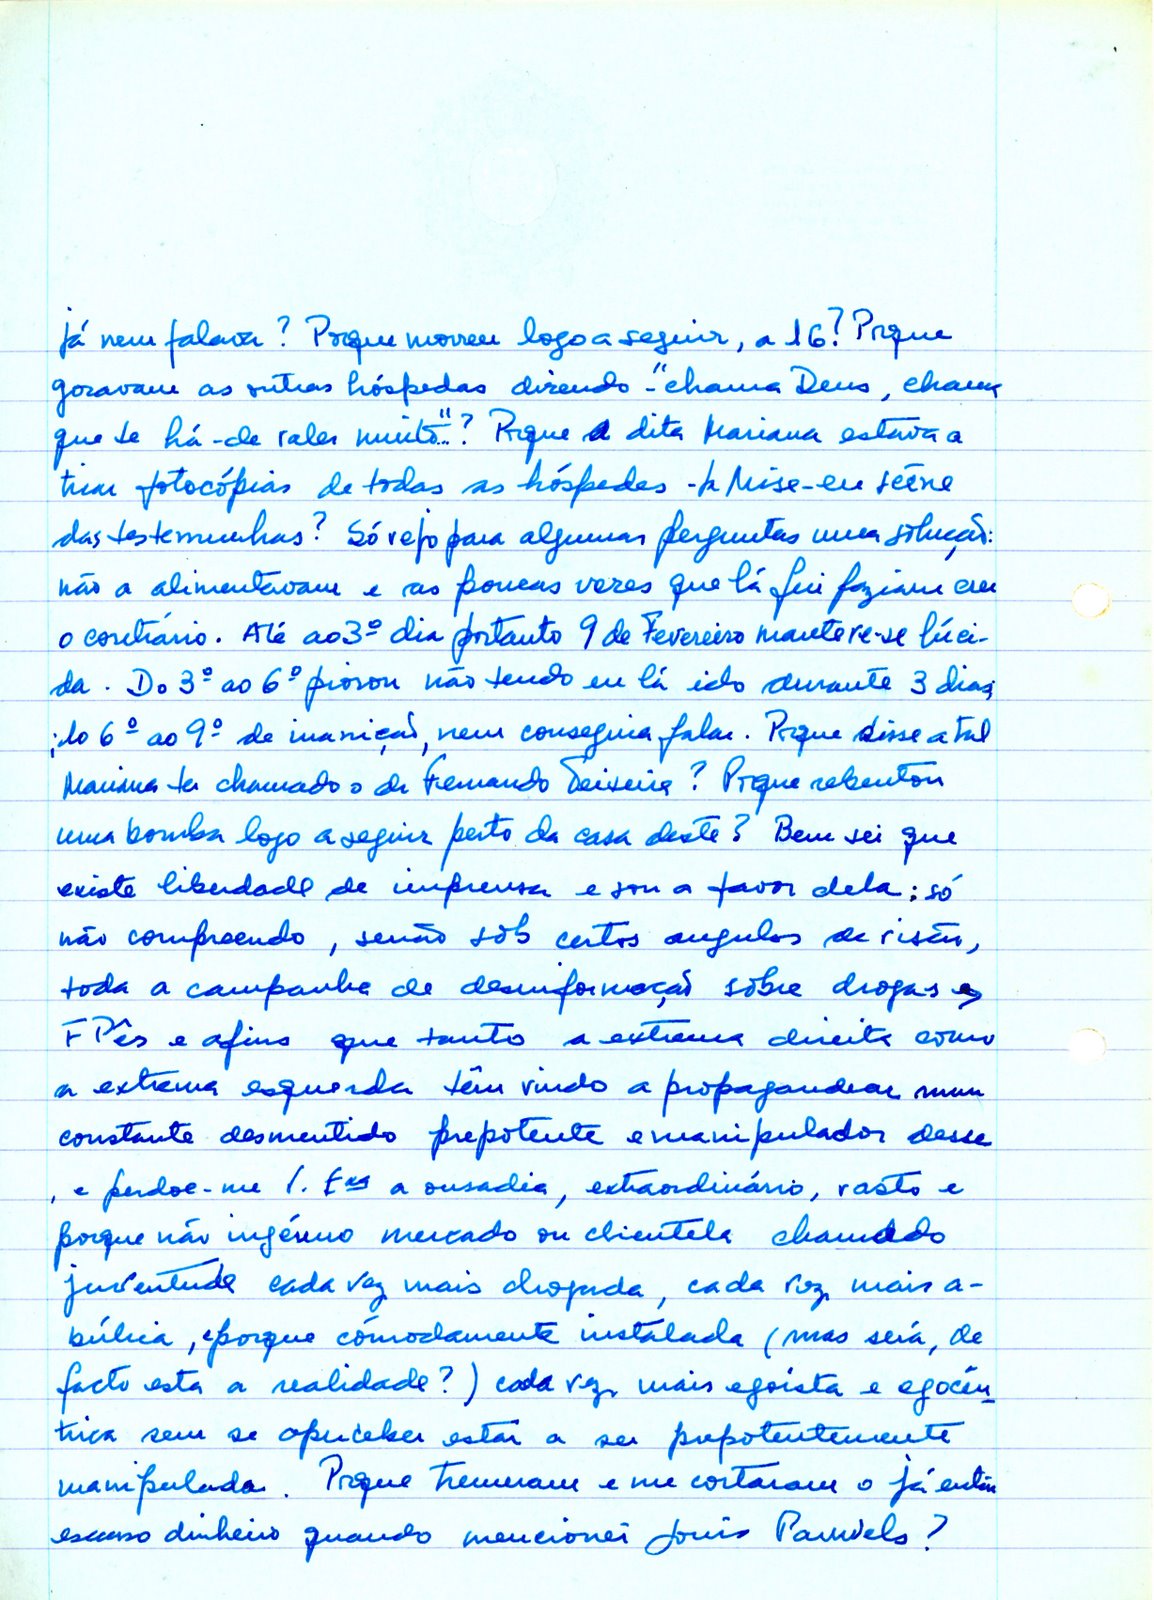 já nem falava? Porque morreu logo a seguir, a 16? Porque
gozavam as outras hóspedas dizendo - "chama Deus, chama
que te há-de valer muito..."? Porque a dita Mariana estava a
tirar fotocópias de todas as hóspedes - Mise-en scène
das testemunhas? Só vejo para algumas perguntas uma solução:
não a alimentavam e as poucas vezes que lá fui faziam crer
o contrário. Até ao 3º dia portanto 9 de Fevereiro manteve-se lúci-
da. Do 3º ao 6º piorou não tendo eu lá ido durante 3 dias
; do 6º ao 9º de inanição, nem conseguia falar. Porque disse a tal
Mariana ter chamado o dr Fernando Teixeira? Porque rebentou
uma bomba logo a seguir perto da casa deste? Bem sei que
existe liberdade de imprensa e sou a favor dela; só
não compreendo, senão sob certos angulos de visão,
toda a campanha de desinformação sôbre drogas e
FPês e afins que tanto a extrema direita como
a extrema esquerda têm vindo a propagandear num
constante desmentido prepotente e manipulador desse
, e perdoe-me V. Exa a ousadia, extraordinário, vasto e
porque não ingénuo mercado ou clientela chamado
juventude cada vez mais drogada, cada vez mais a-
búlica, porque cómodamente instalada (mas será, de
facto esta a realidade?) cada vez mais egoista e egocên-
trica sem se aperceber estar a ser prepotentemente
manipulada. Porque tremeram e me cortaram o já então
escasso dinheiro quando mencionei Louis Pauwels?